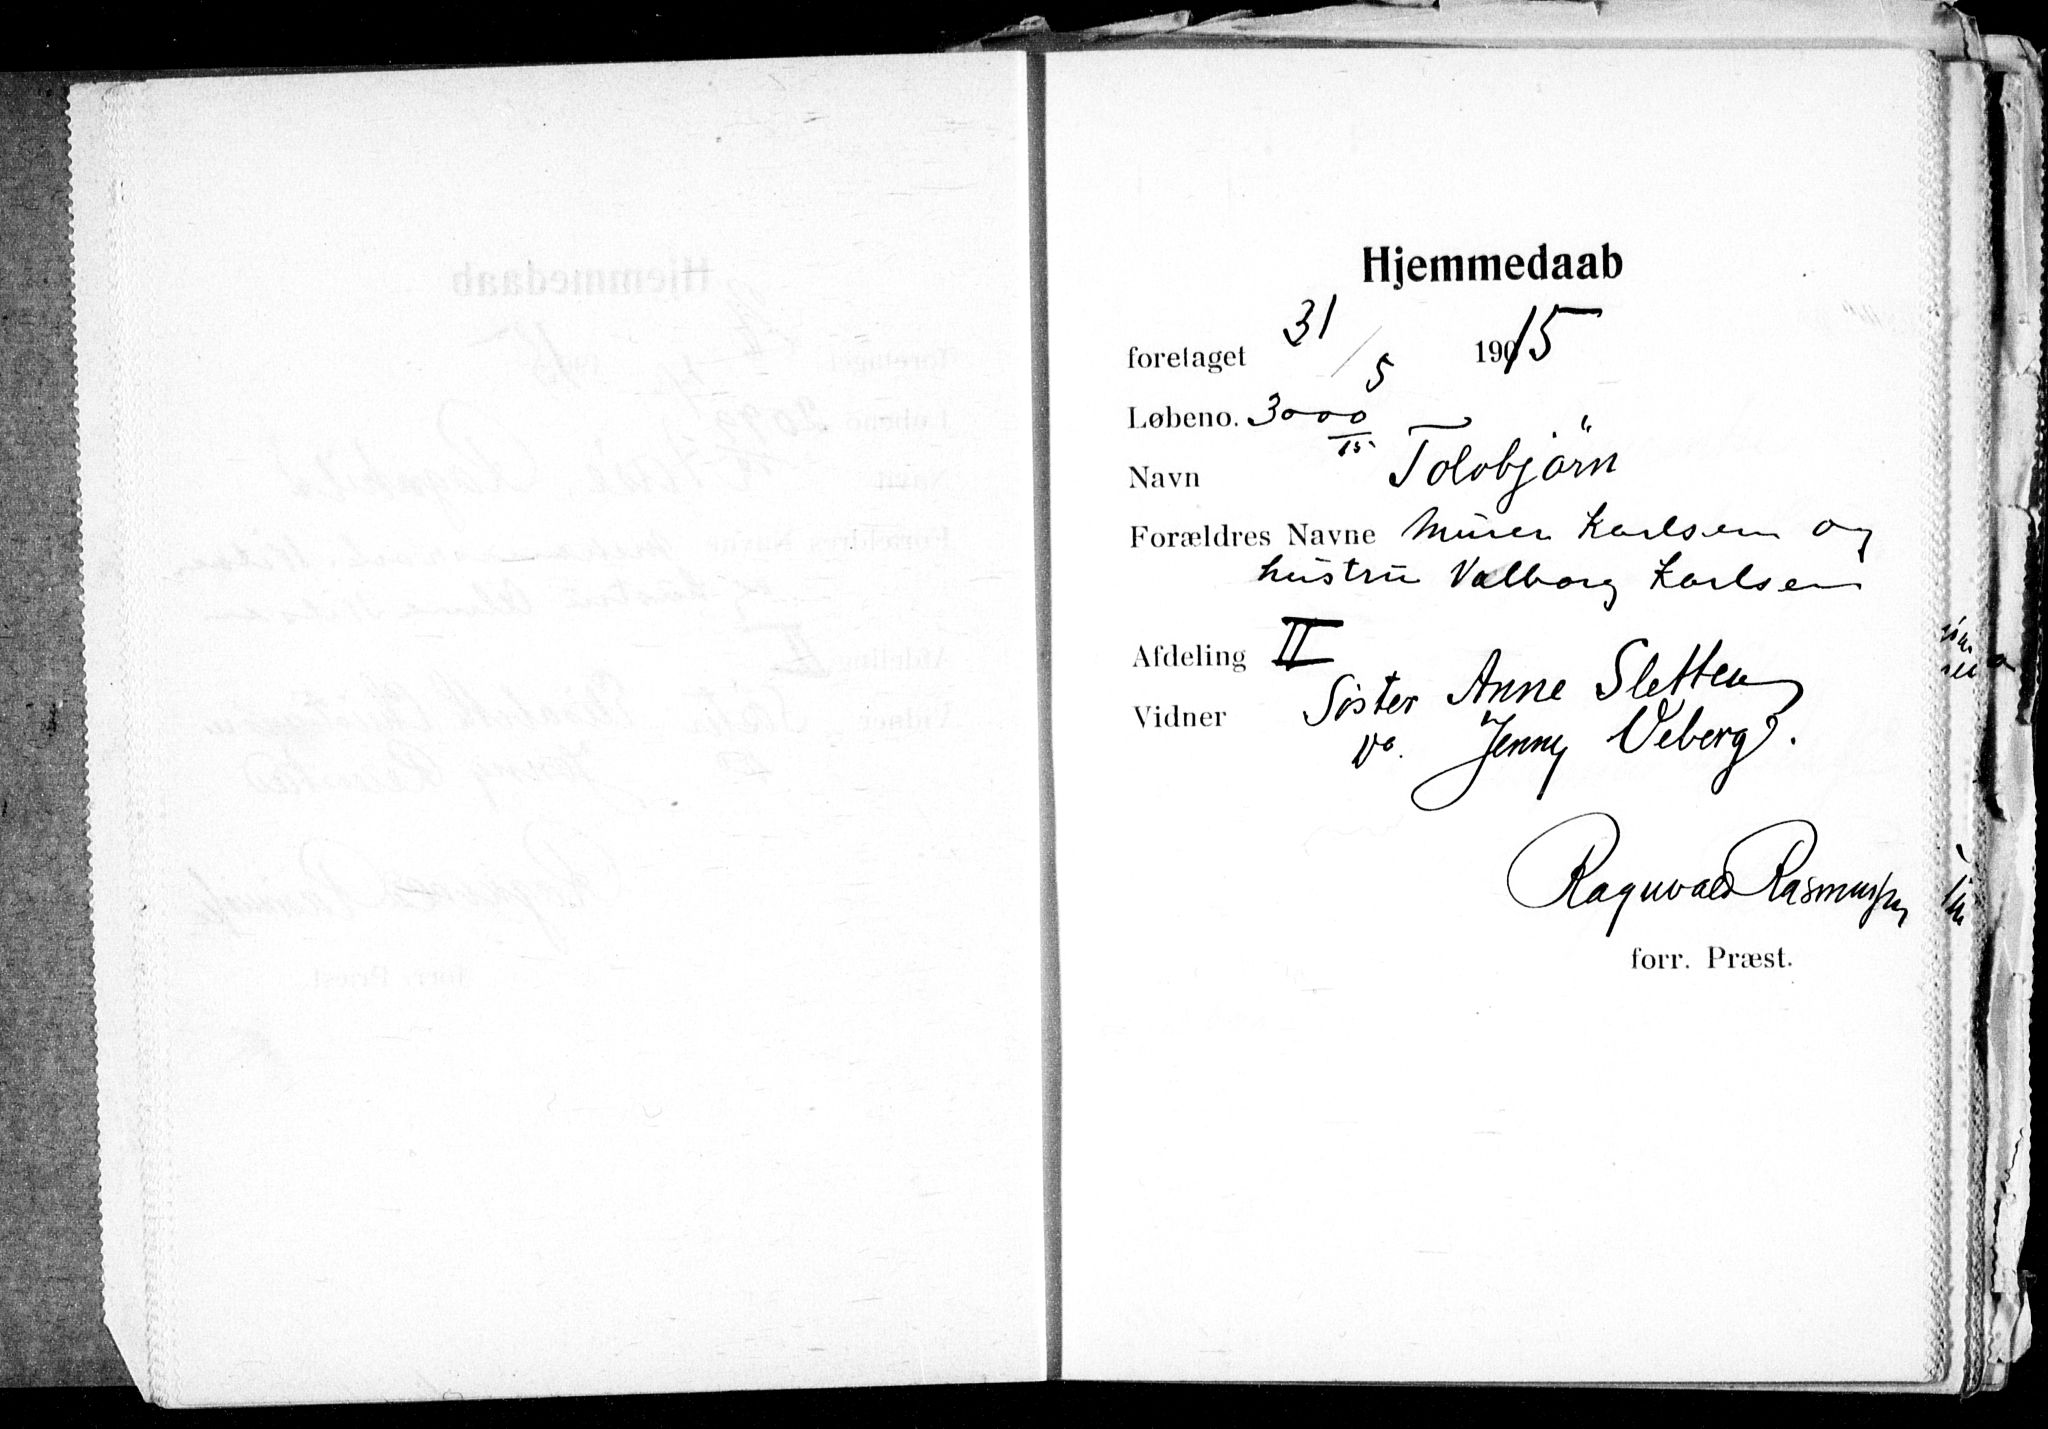 Hjemmedaab
foretaget 31/5 1915
Løbeno. 3000/15
Navn Tolobjörn
Forældres Navne Murer Karlsen og
hustru Valborg Karlsen
Afdeling II
Vidner Søster Anne Sletten
Do. Jenny Veberg.
Ragnvald Rasmussen
forr. Præst.